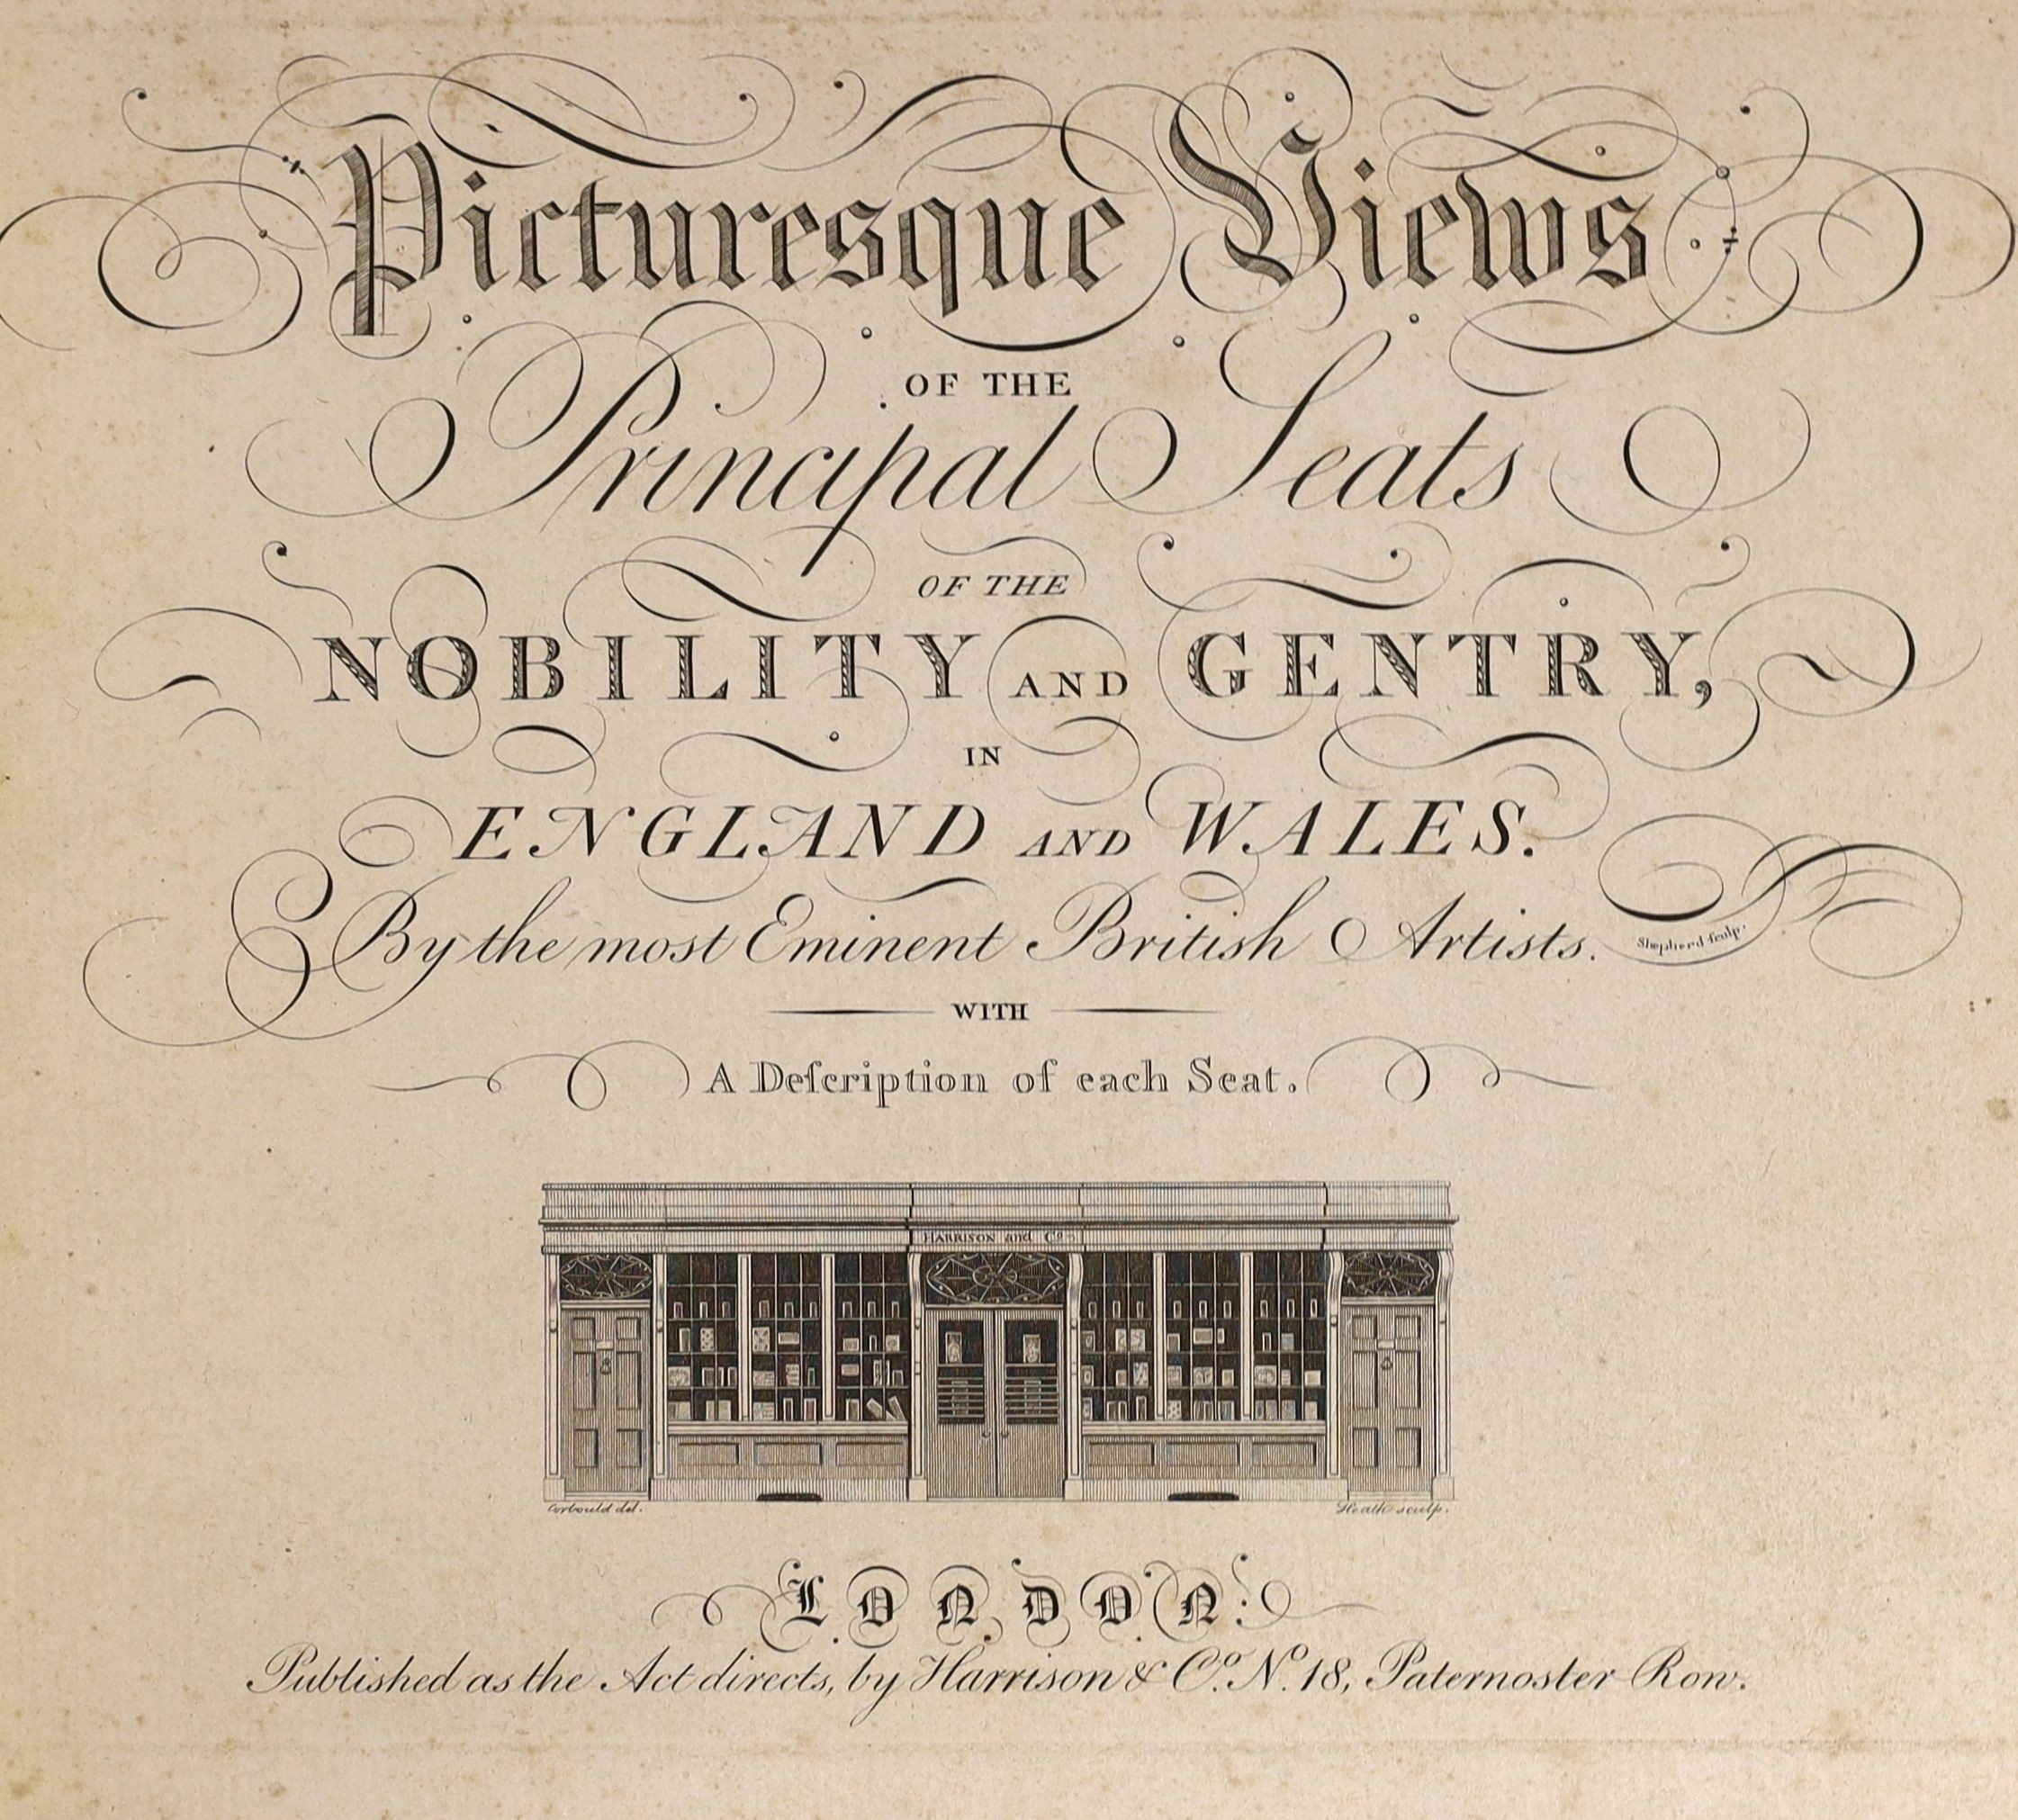 Picturesque Views
OF THE
Principal Seats
OF THE
NOBILITY AND GENTRY,
IN
ENGLAND AND WALES.
By the most Eminent British Artists.
Shepherd sculp.
WITH
A Deſcription of each Seat.
HARRISON and Co.
Corbould del.
Heath sculp.
LONDON:
Published as the Act directs, by Harrison & Co. No. 18, Paternoster Row.